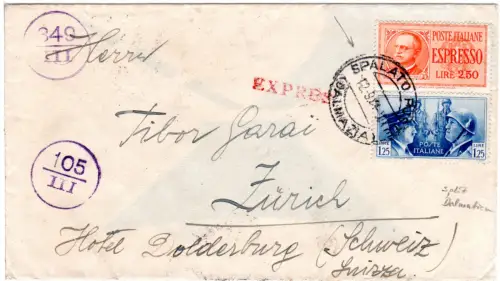 349
III
Herrn
POSTE ITALIANE
ESPRESSO
LIRE 2.50
EXPRES
SPALATO
(DALMAZIA)
Tibor Garai
LIRE
1.25
POSTE
ITALIANE
LIRE
1.25
105
III
Zürich
Dalmatien
Hotel Dolderburg (Schweiz)
Suizza.